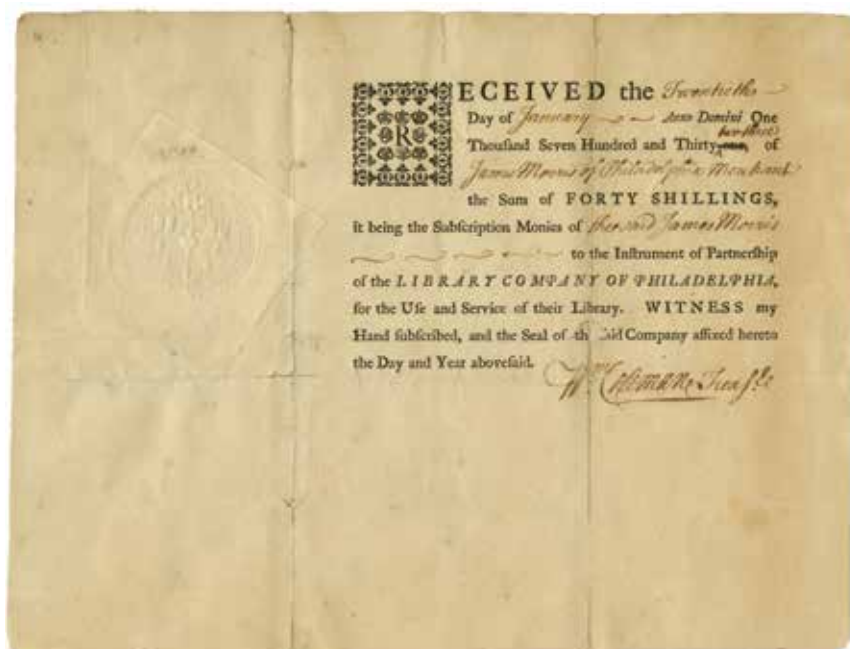 RECEIVED the Twentieth
Day of January Anno Domini One
two three
Thousand Seven Hundred and Thirty one, of
James Morris of Philadelphia Merchant
the Sum of FORTY SHILLINGS,
it being the Subscription Monies of the said James Morris
to the Instrument of Partnership
of the LIBRARY COMPANY OF PHILADELPHIA,
for the Use and Service of their Library. WITNESS my
Hand subscribed, and the Seal of the said Company affixed hereto
the Day and Year abovesaid.
Wm Coleman Treasr